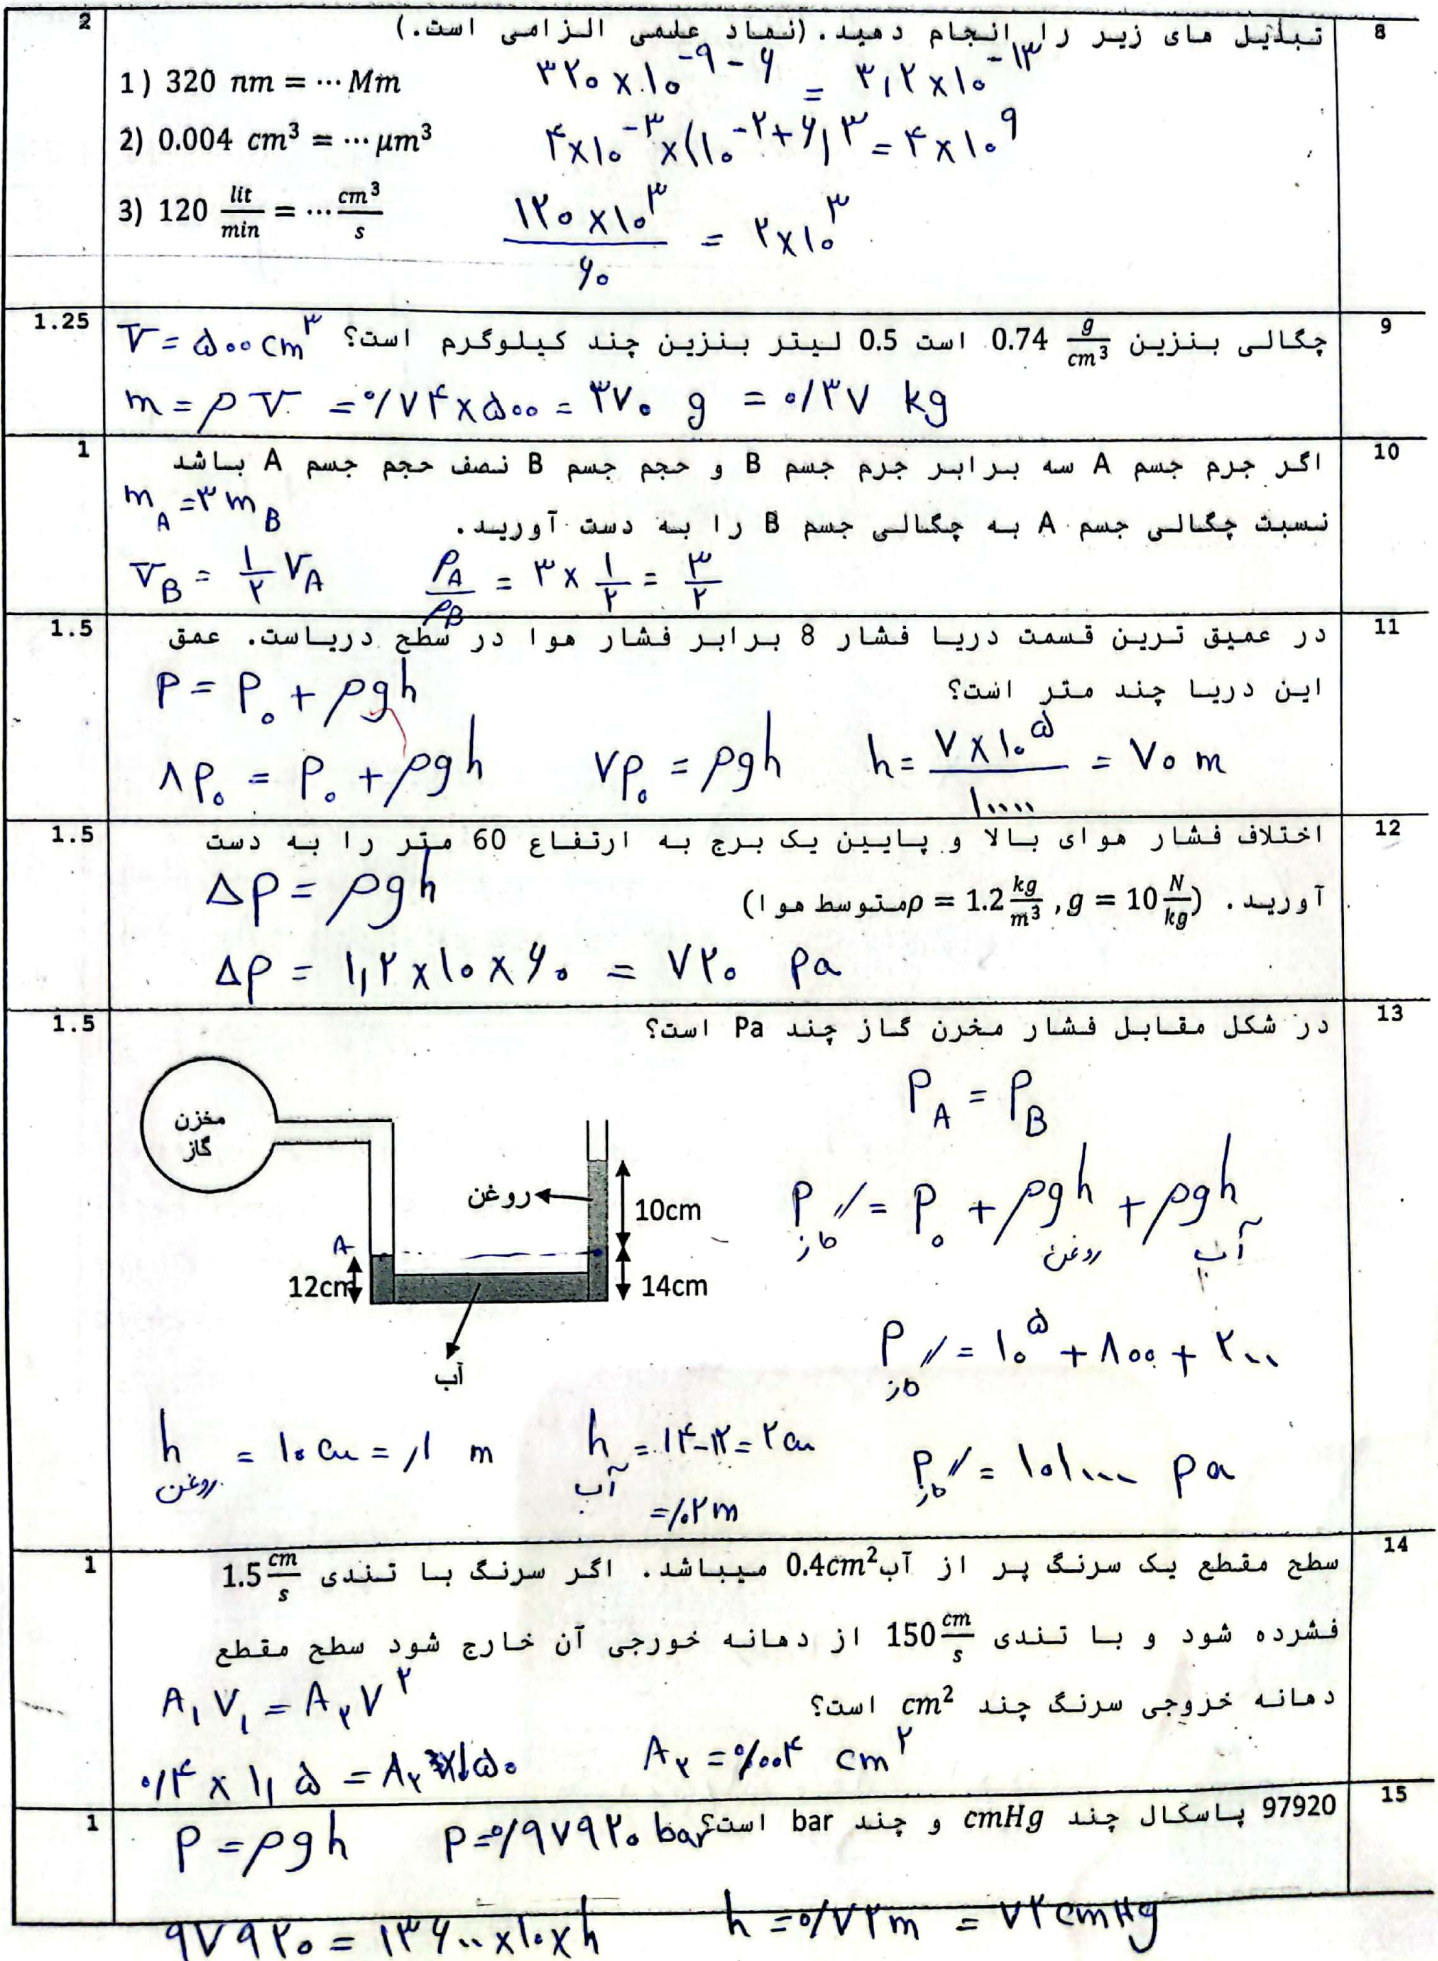 2
8
تبدیل های زیر را انجام دهید. (نماد علمی الزامی است.)
1) 320 nm = ⋯ Mm
۳۲۰ × ۱۰^-۹-۶ = ۳,۲ × ۱۰^-۱۳
2) 0.004 cm³ = ⋯ μm³
۴×۱۰^-۳ × (۱۰^-۲+۶)^۳ = ۴ × ۱۰^۹
3) 120 lit/min = ⋯ cm³/s
۱۲۰ × ۱۰^۳ / ۶۰ = ۲×۱۰^۳
1.25
9
چگالی بنزین 0.74 g/cm³ است 0.5 لیتر بنزین چند کیلوگرم است؟
V = ۵۰۰ cm^۳
m = ρV = ۰/۷۴ × ۵۰۰ = ۳۷۰ g = ۰/۳۷ kg
1
10
اگر جرم جسم A سه برابر جرم جسم B و حجم جسم B نصف حجم جسم A باشد
نسبت چگالی جسم A به چگالی جسم B را به دست آورید.
m_A = ۳ m_B
V_B = ۱/۲ V_A
ρ_A/ρ_B = ۳ × ۱/۲ = ۳/۲
1.5
11
در عمیق ترین قسمت دریا فشار 8 برابر فشار هوا در سطح دریاست. عمق
این دریا چند متر است؟
P = P₀ + ρgh
۸P₀ = P₀ + ρgh
۷P₀ = ρgh
h = ۷ × ۱۰^۵ / ۱۰۰۰۰ = ۷۰ m
1.5
12
اختلاف فشار هوای بالا و پایین یک برج به ارتفاع 60 متر را به دست
آورید. (ρمتوسط هوا = 1.2 kg/m³ , g = 10 N/kg)
Δp = ρgh
Δp = ۱,۲ × ۱۰ × ۶۰ = ۷۲۰ pa
1.5
13
در شکل مقابل فشار مخرن گاز چند Pa است؟
مخزن
گاز
روغن
10cm
A
12cm
14cm
آب
P_A = P_B
P گاز = P₀ + ρgh روغن + ρgh آب
P گاز = ۱۰^۵ + ۸۰۰ + ۲۰۰
h روغن = ۱۰ cm = ,۱ m
h آب = ۱۴-۱۲ = ۲ cm
=/۰۲ m
P گاز = ۱۰۱۰۰۰ pa
1
14
سطح مقطع یک سرنگ پر از آب 0.4cm² میباشد. اگر سرنگ با تندی 1.5 cm/s
فشرده شود و با تندی 150 cm/s از دهانه خورجی آن خارج شود سطح مقطع
دهانه خزوجی سرنگ چند cm² است؟
A₁ V₁ = A₂ V^۲
۰/۴ × ۱,۵ = A₂ × ۱۵۰
A₂ = ۰/۰۰۴ cm^۲
1
15
97920 پاسکال چند cmHg و چند bar است؟
P = ρgh
P = ۰/۹۷۹۲۰ bar
۹۷۹۲۰ = ۱۳۶۰۰ × ۱۰ × h
h = ۰/۷۲ m = ۷۲ cmHg